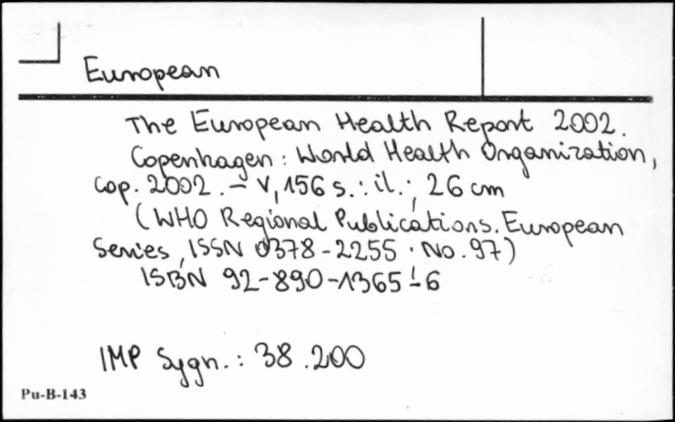 European
The European Health Report 2002.
Copenhagen : World Health Organization,
cop. 2002 . – V, 156 s. : il. ; 26 cm
(WHO Regional Publications. European
Series, ISSN 0378-2255 ; No. 97)
ISBN 92-890-1365-6
IMP Sygn. : 38.200
Pu-B-143